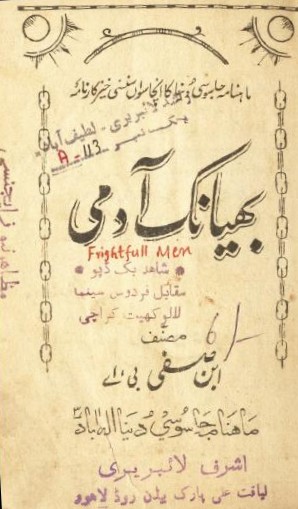 ماہنامہ جاسوسی دنیا کا انچاسواں سنسنی خیز کارنامہ
لائبریری - لطیف آباد
A - 113
بھیانک آدمی
Frightfull Men
شاہد بک ڈپو
مقابل فردوس سینما
لالو کھیت کراچی
مصنف
ابن صفی بی اے
ماہنامہ جاسوسی دنیا الہ آباد
اشرف لائبریری
لیاقت علی پارک بیڈن روڈ لاہور